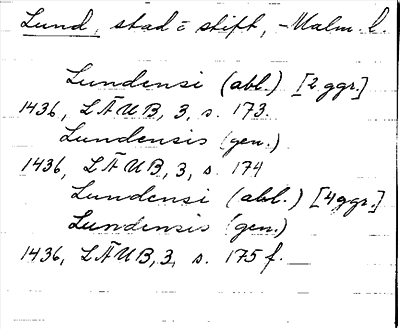 Lund, stad o stift, – Malm. l.
Lundensi (abl.) [2 ggr.]
1436, LÄUB, 3, s. 173.
Lundensis (gen.)
1436, LÄUB, 3, s. 174
Lundensi (abl.) [4 ggr.]
Lundensis (gen.)
1436, LÄUB, 3, s. 175 f.